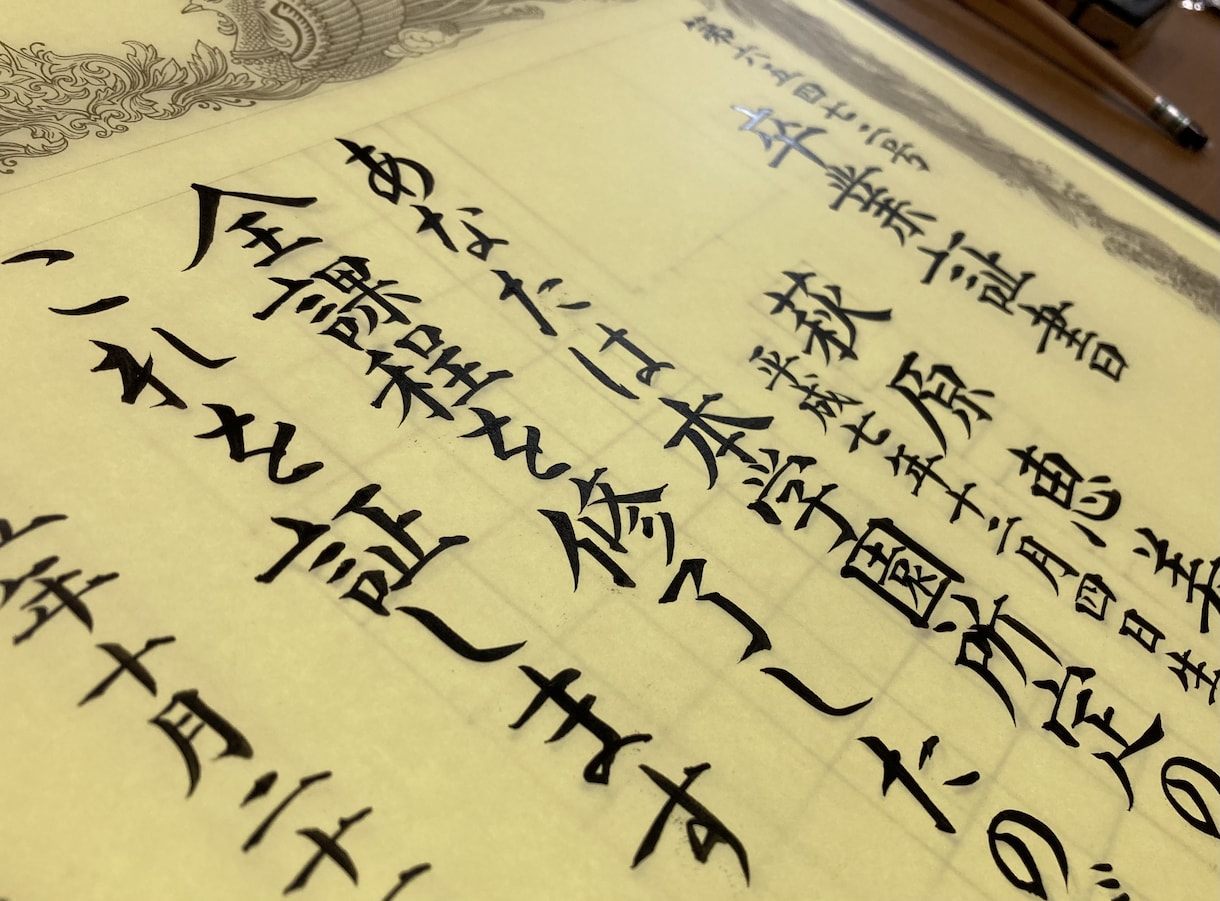 第六五四七二号
卒業証書
萩原恵美
平成七年十二月四日生
あなたは本学園所定の
全課程を修了したの
これを証します
年十月二十